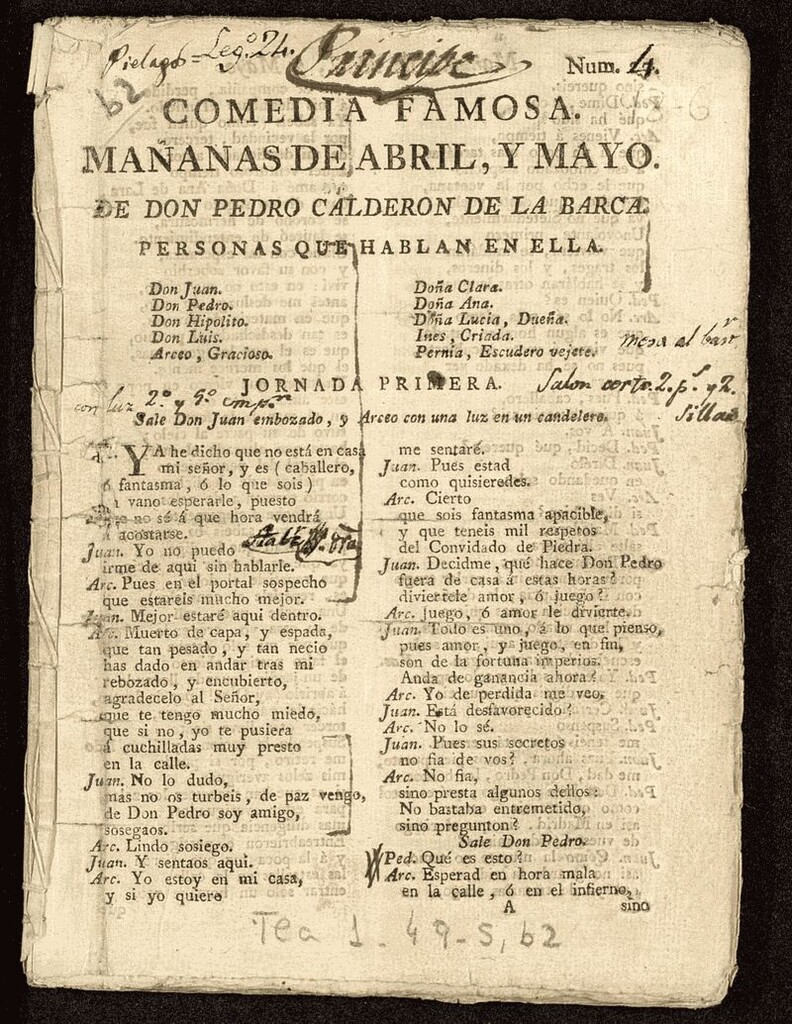 Pielagos = Leg.º 24.
Principe
Num. 4.
b2
COMEDIA FAMOSA.
MAÑANAS DE ABRIL, Y MAYO.
DE DON PEDRO CALDERON DE LA BARCA.
PERSONAS QUE HABLAN EN ELLA.
Don Juan.
Don Pedro.
Don Hipolito.
Don Luis.
Arceo, Gracioso.
Doña Clara.
Doña Ana.
Doña Lucia, Dueña.
Ines, Criada.
Pernia, Escudero vejete.
mesa al
JORNADA PRIMERA.
Salon corto. 2. p.s y 2.
sillas
con luz 2.º y 5.º
Sale Don Juan embozado, y Arceo con una luz en un candelero.
YA he dicho que no está en casa
mi señor, y es (caballero,
ó fantasma, ó lo que sois)
vano esperarle, puesto
no sé á que hora vendrá
á acostarse.
Juan. Yo no puedo
irme de aqui sin hablarle.
Arc. Pues en el portal sospecho
que estareis mucho mejor.
Juan. Mejor estaré aqui dentro.
Arc. Muerto de capa, y espada,
que tan pesado, y tan necio
has dado en andar tras mi
rebozado, y encubierto,
agradecelo al Señor,
que te tengo mucho miedo,
que si no, yo te pusiera
á cuchilladas muy presto
en la calle.
Juan. No lo dudo,
mas no os turbeis, de paz vengo,
de Don Pedro soy amigo,
sosegaos.
Arc. Lindo sosiego.
Juan. Y sentaos aqui.
Arc. Yo estoy en mi casa,
y si yo quiero
me sentaré.
Juan. Pues estad
como quisieredes.
Arc. Cierto
que sois fantasma apacible,
y que teneis mil respetos
del Convidado de Piedra.
Juan. Decidme, qué hace Don Pedro
fuera de casa á estas horas?
diviertele amor, ó juego?
Arc. Juego, ó amor le divierte.
Juan. Todo es uno, á lo que pienso,
pues amor, y juego, en fin,
son de la fortuna imperios.
Anda de ganancia ahora?
Arc. Yo de perdida me veo.
Juan. Está desfavorecido?
Arc. No lo sé.
Juan. Pues sus secretos
no fia de vos?
Arc. No fia,
sino presta algunos dellos:
No bastaba entremetido,
sino pregunton?
Sale Don Pedro.
Ped. Qué es esto?
Arc. Esperad en hora mala
en la calle, ó en el infierno,
A sino
Tea 1-49-5, b2